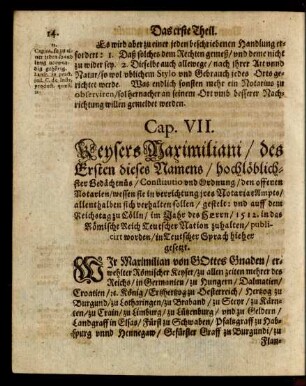 14. Das erste Theil.
Es wird aber zu einer jeden beschriebenen Handlung er-
fordert: 1. Daß solches dem Rechten gemeß/ und deme nicht
zu wider sey. 2. Dieselbe auch allewege/ nach jhrer Art vnnd
Natur/ so wol vblichem Stylo vnd Gebrauch jedes Orts ge-
richtet werde. Was endlich sonsten mehr ein Notarius zu
observiren/ sol hernacher an seinem Ort vnd besserer Nach-
richtung willen gemeldet werden.
Cap. VII.
Keysers Maximiliani/ des
Ersten dieses Namens/ hochlöblich-
ster Gedächtnüs/ Constitution vnd Ordnung/ den offenen
Notarien/ wessen sie in verrichtung jres Notariat Ampts/
allenthalben sich verhalten sollen/ gestelt: vnd auff dem
Reichstag zu Cölln/ im Jahr des Herrn/ 1512. in das
Römische Reich Teutscher Nation zuhalten/ publi-
cirt worden/ in Teutscher Sprach hieher
gesetzt.
WIr Maximilian von GOttes Gnaden/ er-
wehlter Römischer Keyser/ zu allen zeiten mehrer des
Reichs/ in Germanien/ zu Hungern/ Dalmatien/
Croatien/ ꝛc. König/ Ertzhertzog zu Oesterreich/ Hertzog zu
Burgund/ zu Lotharingen/ zu Braband/ zu Steyr/ zu Kärn-
ten/ zu Crain/ zu Limburg/ zu Lützenburg/ vnd zu Geldern/
Landgraff in Elsas/ Fürst zu Schwaben/ Pfaltzgraff zu Hab-
spurg vnnd Hennegaw/ Gefürster Graff zu Burgundi/ zu
Flan-